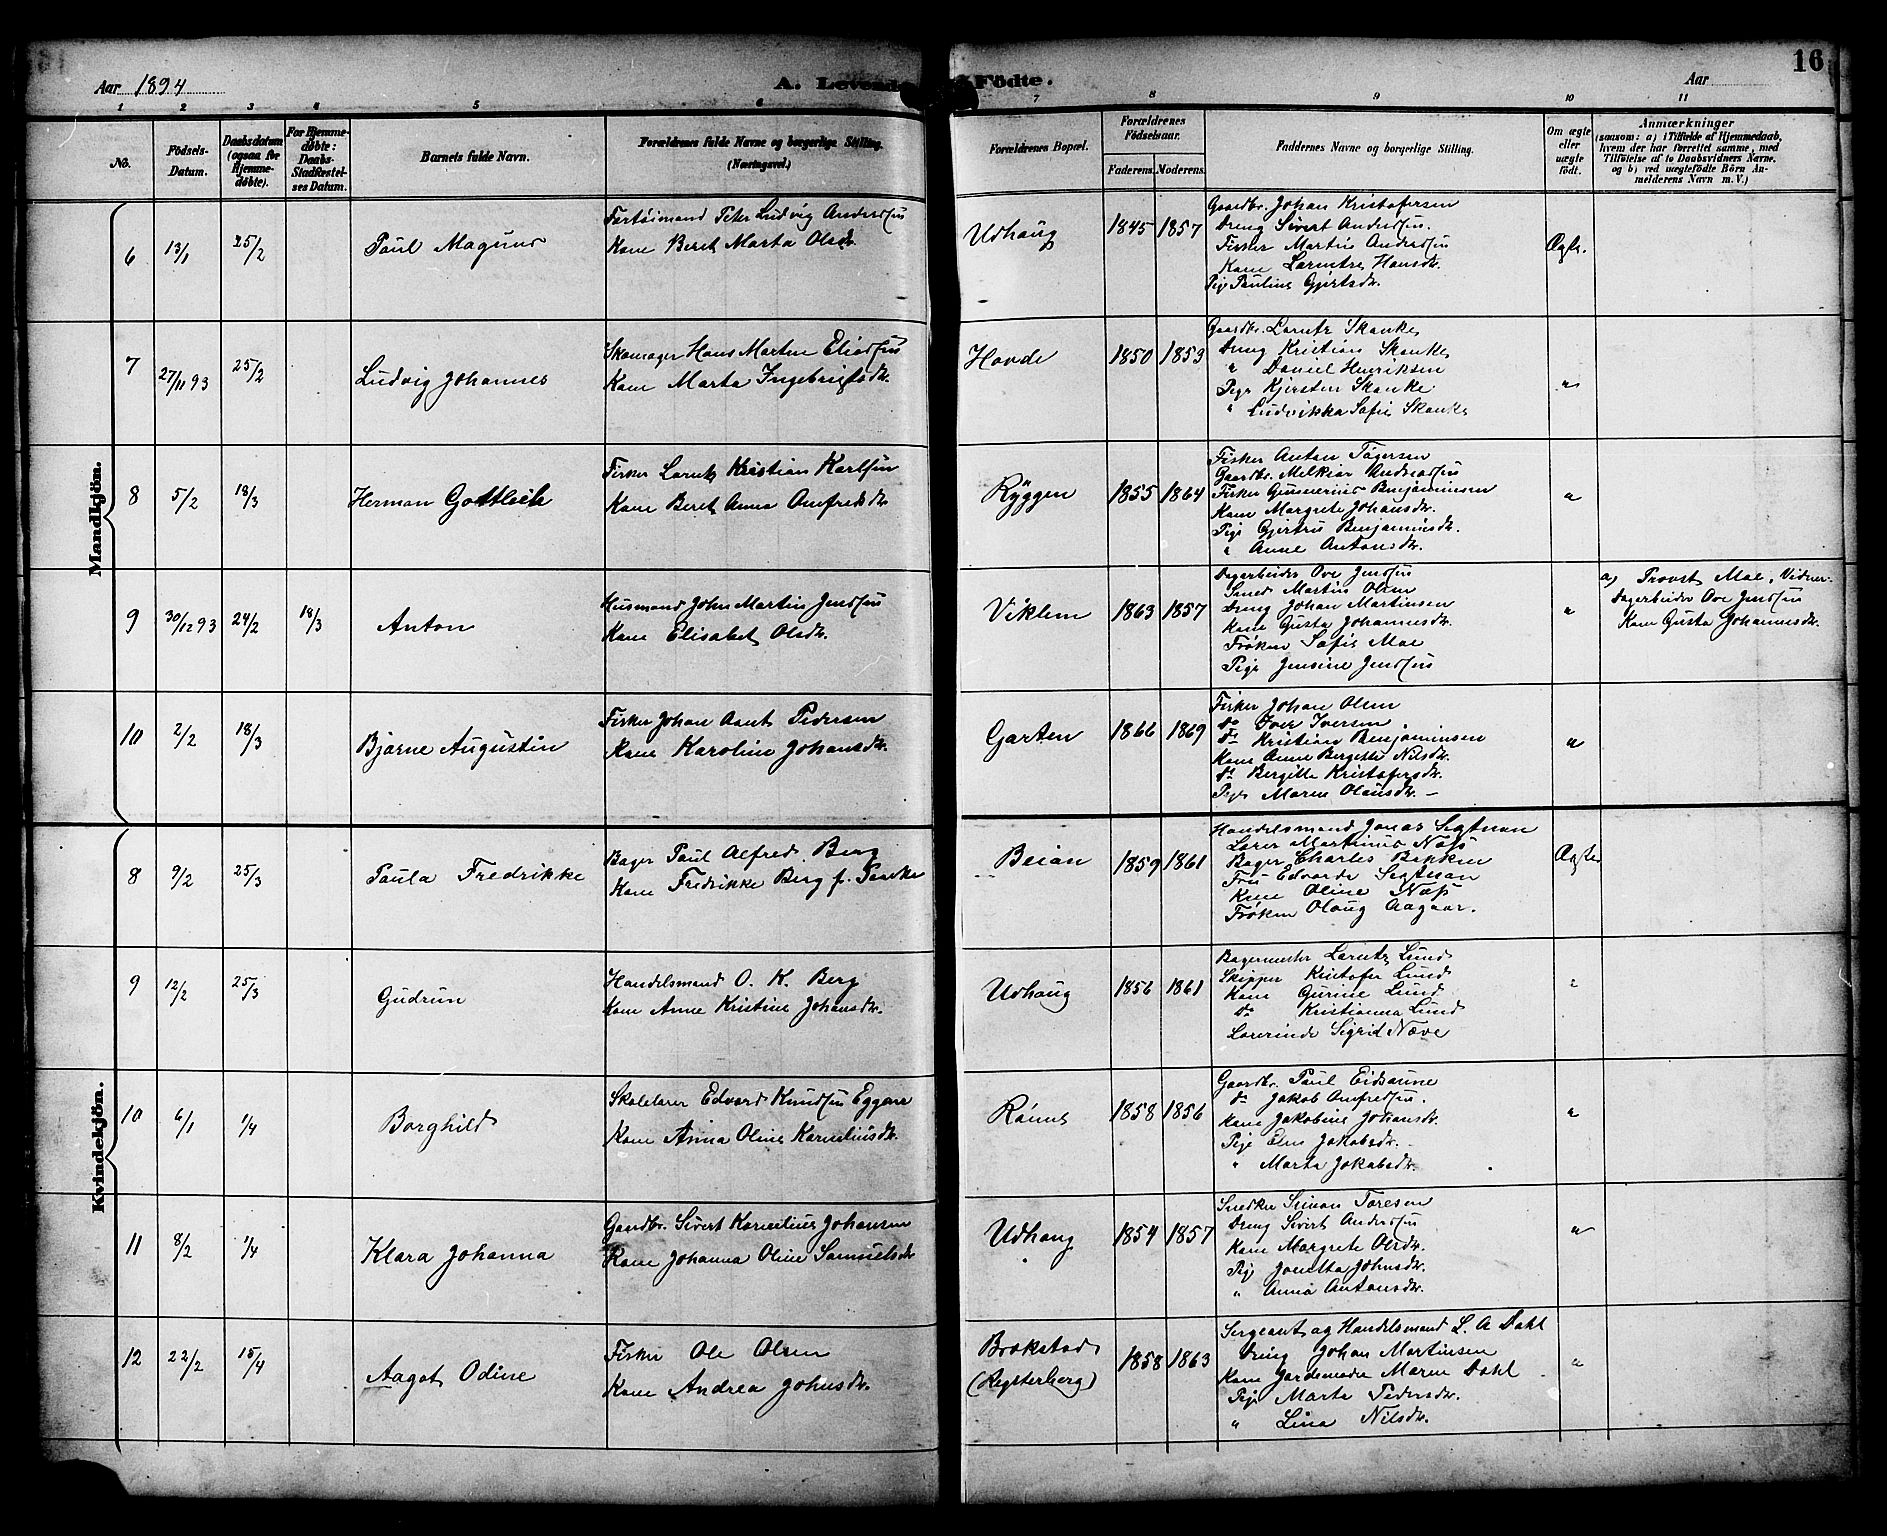 Aar 1894
A. Levende Födte.
Aar
16
1 2 3 4 5 6 7 8 9 10 11
No.
Födsels-Datum.
Daabsdatum (ogsaa for Hjemmedøbte).
For Hjemmedøbte: Daabs-Stadfæstelses Datum.
Barnets fulde Navn.
Forældrenes fulde Navne og borgerlige Stilling. (Næringsvei.)
Forældrenes Bopæl.
Forældrenes Födselsaar.
Faderens. Moderens.
Faddernes Navne og borgerlige Stilling.
Om ægte eller uægte födt.
Anmærkninger
(saasom: a) i Tilfælde af Hjemmedaab, hvem der har forrettet samme, med Tilföielse af to Daabsvidners Navne, og b) ved uægtefödte Börn Anmelderens Navn m. V.)
Mandkjön.
6 13/1 25/2 Paul Magnus
Peter Ludvig Andersen
Kone Beret Marta Olsdr.
Udhaug 1845 1857
Gaardbr. Johan Kristofersen
Dreng Sivert Andersen.
Fisker Martin Andersen
Kone Larentse Hansdr.
Pige Pauline Gjertsdr.
Ægte.
7 27/11 93 25/2 Ludvig Johannes
Skomager Hans Martin Eliassen
Kone Marta Ingebrigtsdr.
Hovde 1850 1853
Gaardbr. Larentz Skanke
Dreng Kristian Skanke
" Daniel Henriksen
Pige Kjersten Skanke
" Ludvikka Sofie Skanke
"
8 5/2 18/3 Herman Gottlieb
Fisker Larentz Kristian Karlsen
Kone Beret Anna Amfredsdr.
Ryggen 1855 1864
Fisker Anton Tögersen
Gaardbr. Melkior Andreassen
Fisker Gunnerius Benjaminsen
Kone Margrete Johansdr.
Pige Gjertru Benjaminsdr.
" Anne Antonsdr.
"
9 30/12 93 24/2 18/3 Anton
Husmand John Martin Jenssen
Kone Elisabet Olsdr.
Viklem 1863 1857
Dagarbeider Ove Jenssen
Smed Martin Olsen
Dreng Johan Martinsen
Kone Gusta Johannesdr.
Frøken Sofie Moe
Pige Jensine Jenssen
"
a) Provst Moe. Vidner.
Dagarbeider Ove Jenssen
Kone Gusta Johannesdr.
10 2/2 18/3 Bjarne Augustin
Fisker Johan Aunt Pedersen
Kone Karoline Johansdr.
Garten 1866 1869
Fisker Johan Olsen
do Iver Iversen
do Kristian Benjaminsen
Kone Anne Bergitte Nilsdr.
do Bergitte Kristofersdr.
Pige Maren Olausdr. —
"
Kvindekjön.
8 9/2 25/3 Paula Fredrikke
Bager Paul Alfred Berg
Kone Fredrikke Berg f.
Beian 1859 1861
Handelsmand Jonas Segtnan
Lærer Martinus Næss
Bager Charles Bakken
Fru Edvarda Segtnan
Kone Oline Næss
Frøken Olaug Aagaar.
Ægte
9 12/2 25/3 Gudrun
Handelsmand O. K. Berg
Kone Anne Kristine Johansdr.
Udhaug 1856 1861
Bagermester Larentz Lund
Skipper Kristofer Lund
Kone Gurine Lund
do Kristianna Lund
Lærerinde Sigrid Næve
"
10 6/1 1/4 Borghild
Skolelærer Edvard Knudsen Eggen
Kone Anna Oline Korneliusdr.
Rømel 1858 1856
Gaardbr. Paul Eidsaune
do Jakob Amfredsen.
Kone Jakobine Johansdr.
Pige Elen Jakobsdr.
" Marta Jokabsdr.
"
11 8/2 1/4 Klara Johanna
Gaardbr. Sivert Kornelius Johansen
Kone Johanna Oline Samuelsdr
Udhaug 1854 1857
Snedker Simon Toresen
Dreng Sivert Andersen
Kone Margrete Olsdr.
Pige Jonetta Johnsdr.
" Anna Antonsdr.
"
12 22/2 15/4 Aagot Odine
Fisker Ole Olsen
Kone Andrea Johnsdr.
Brækstad
(Røysterberg)
1858 1863
Sergeant og Handelsmand L. A Dahl
Dreng Johan Martinsen
Kone Jordemoder Maren Dahl
Pige Marta Pedersdr.
" Lina Nilsdr.
"